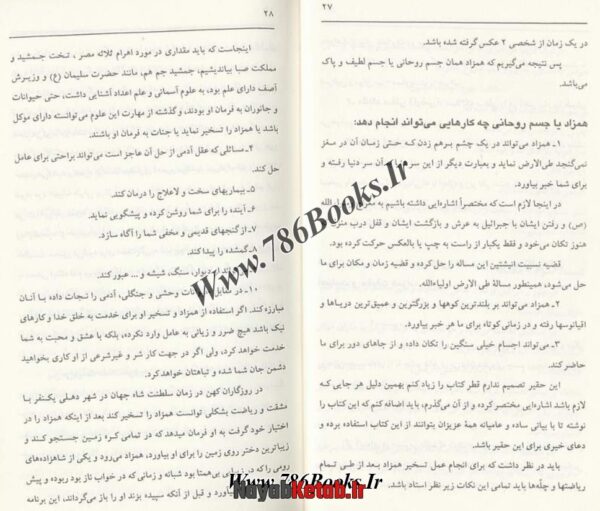 ۲۷
در یک زمان از شخصی ۲ عکس گرفته شده باشد.
پس نتیجه می‌گیریم که همزاد همان جسم روحانی یا جسم لطیف و پاک
می‌باشد.
همزاد یا جسم روحانی چه کارهایی می‌تواند انجام دهد:
۱ـ همزاد می‌تواند در یک چشم برهم زدن که حتی زمان آن در مغز
نمی‌گنجد طی‌الارض نماید و بعبارت دیگر از این سر دنیا به آن سر دنیا رفته و
برای شما خبر بیاورد.
در اینجا لازم است که مختصراً اشاره‌ایی داشته باشیم به الله
(ص) و رفتن ایشان با جبرائیل به عرش و بازگشت ایشان و قفل درب
هنوز تکان می‌خورد و فقط یکبار از راست به چپ یا بالعکس حرکت کرده بود.
قضیه نسبیت انیشتین این مساله را حل کرده و قضیه زمان و مکان برای ما
حل می‌شود، همینطور مسالهٔ طی الارض اولیاءالله.
۲ـ همزاد می‌تواند به بلندترین کوهها و بزرگترین و عمیق‌ترین دریاها و
اقیانوسها رفته و در زمانی کوتاه برای ما هر خبر بیاورد.
۳ـ می‌تواند اجسام خیلی سنگین را تکان داده و از جاهای دور برای ما
حاضر کند.
این حقیر تصمیم ندارم قطر کتاب را زیاد کنم بهمین دلیل هر جایی که
لازم باشد اشاره‌ایی مختصر کرده و از آن می‌گذرم، باید اضافه کنم که این کتاب را
نوشته تا با بیانی ساده و عامیانه همهٔ عزیزان بتوانند از این کتاب استفاده برده و
دعای خیری برای این حقیر باشد.
باید در نظر داشت که برای انجام عمل تسخیر همزاد بعد از طی تمام
ریاضتها و چله‌ها باید تمامی این نکات زیر نظر استاد باشد.
۲۸
اینجاست که باید مقداری در مورد اهرام ثلاثه مصر ، تخت جمشید و
مملکت صبا بیاندیشیم، جمشید جم هم، مانند حضرت سلیمان (ع) و وزیرش
آصف دارای علم بود، به علوم آسمانی و علم اعداد آشنایی داشت، حتی حیوانات
و جانوران به فرمان او بودند، و گذشته از مهارت این علوم می‌توانسته دارای موکل
باشد یا همزاد را تسخیر نماید یا جنات به فرمان او باشند.
۴ـ مسائلی که عقل آدمی از حل آن عاجز است می‌تواند براحتی برای عامل
حل کند.
۵ـ بیماریهای سخت و لاعلاج را درمان کند.
۶ـ آینده را برای شما روشن کرده و پیشگویی نماید.
۷ـ از گنجهای قدیمی و مخفی شما را آگاه سازد.
۸ـ گمشده را پیدا کند.
دیوار، سنگ، شیشه و ... عبور کند.
۱۰ـ در مقابل وحشی و جنگلی، آدمی را نجات داده با آنان
مبارزه کند. اگر استفاده از همزاد و تسخیر او برای خدمت به خلق خدا و کارهای
نیک باشد هیچ ضرر و زیانی به عامل وارد نکرده، بلکه با عشق و محبت به شما
خدمت خواهد کرد، ولی اگر در جهت کار شر و غیرشرعی از او کاری بخواهید
دشمن جان شما شده و تباهتان خواهد کرد.
در روزگاران کهن در زمان سلطنت شاه جهان در شهر دهلی یکنفر با
مشقت و ریاضت بشکلی توانست همزاد را تسخیر کند بعد از اینکه همزاد را در
اختیار خود گرفت به او فرمان میدهد که در تمامی کره زمین جستجو کند و
زیباترین دختر روی زمین را برای او بیاورد، همزاد می‌رود و یکی از شاهزاده‌های
رومی را که در زیبایی بی‌همتا بود شبانه و زمانی که در خواب ناز بود ربوده و پیش
و قبل از آنکه سپیده بزند او را باز می‌گرداند، این برنامه
Www.786Books.Ir
Www.786Books.Ir
Www.786Books.Ir
NayabKetab.ir